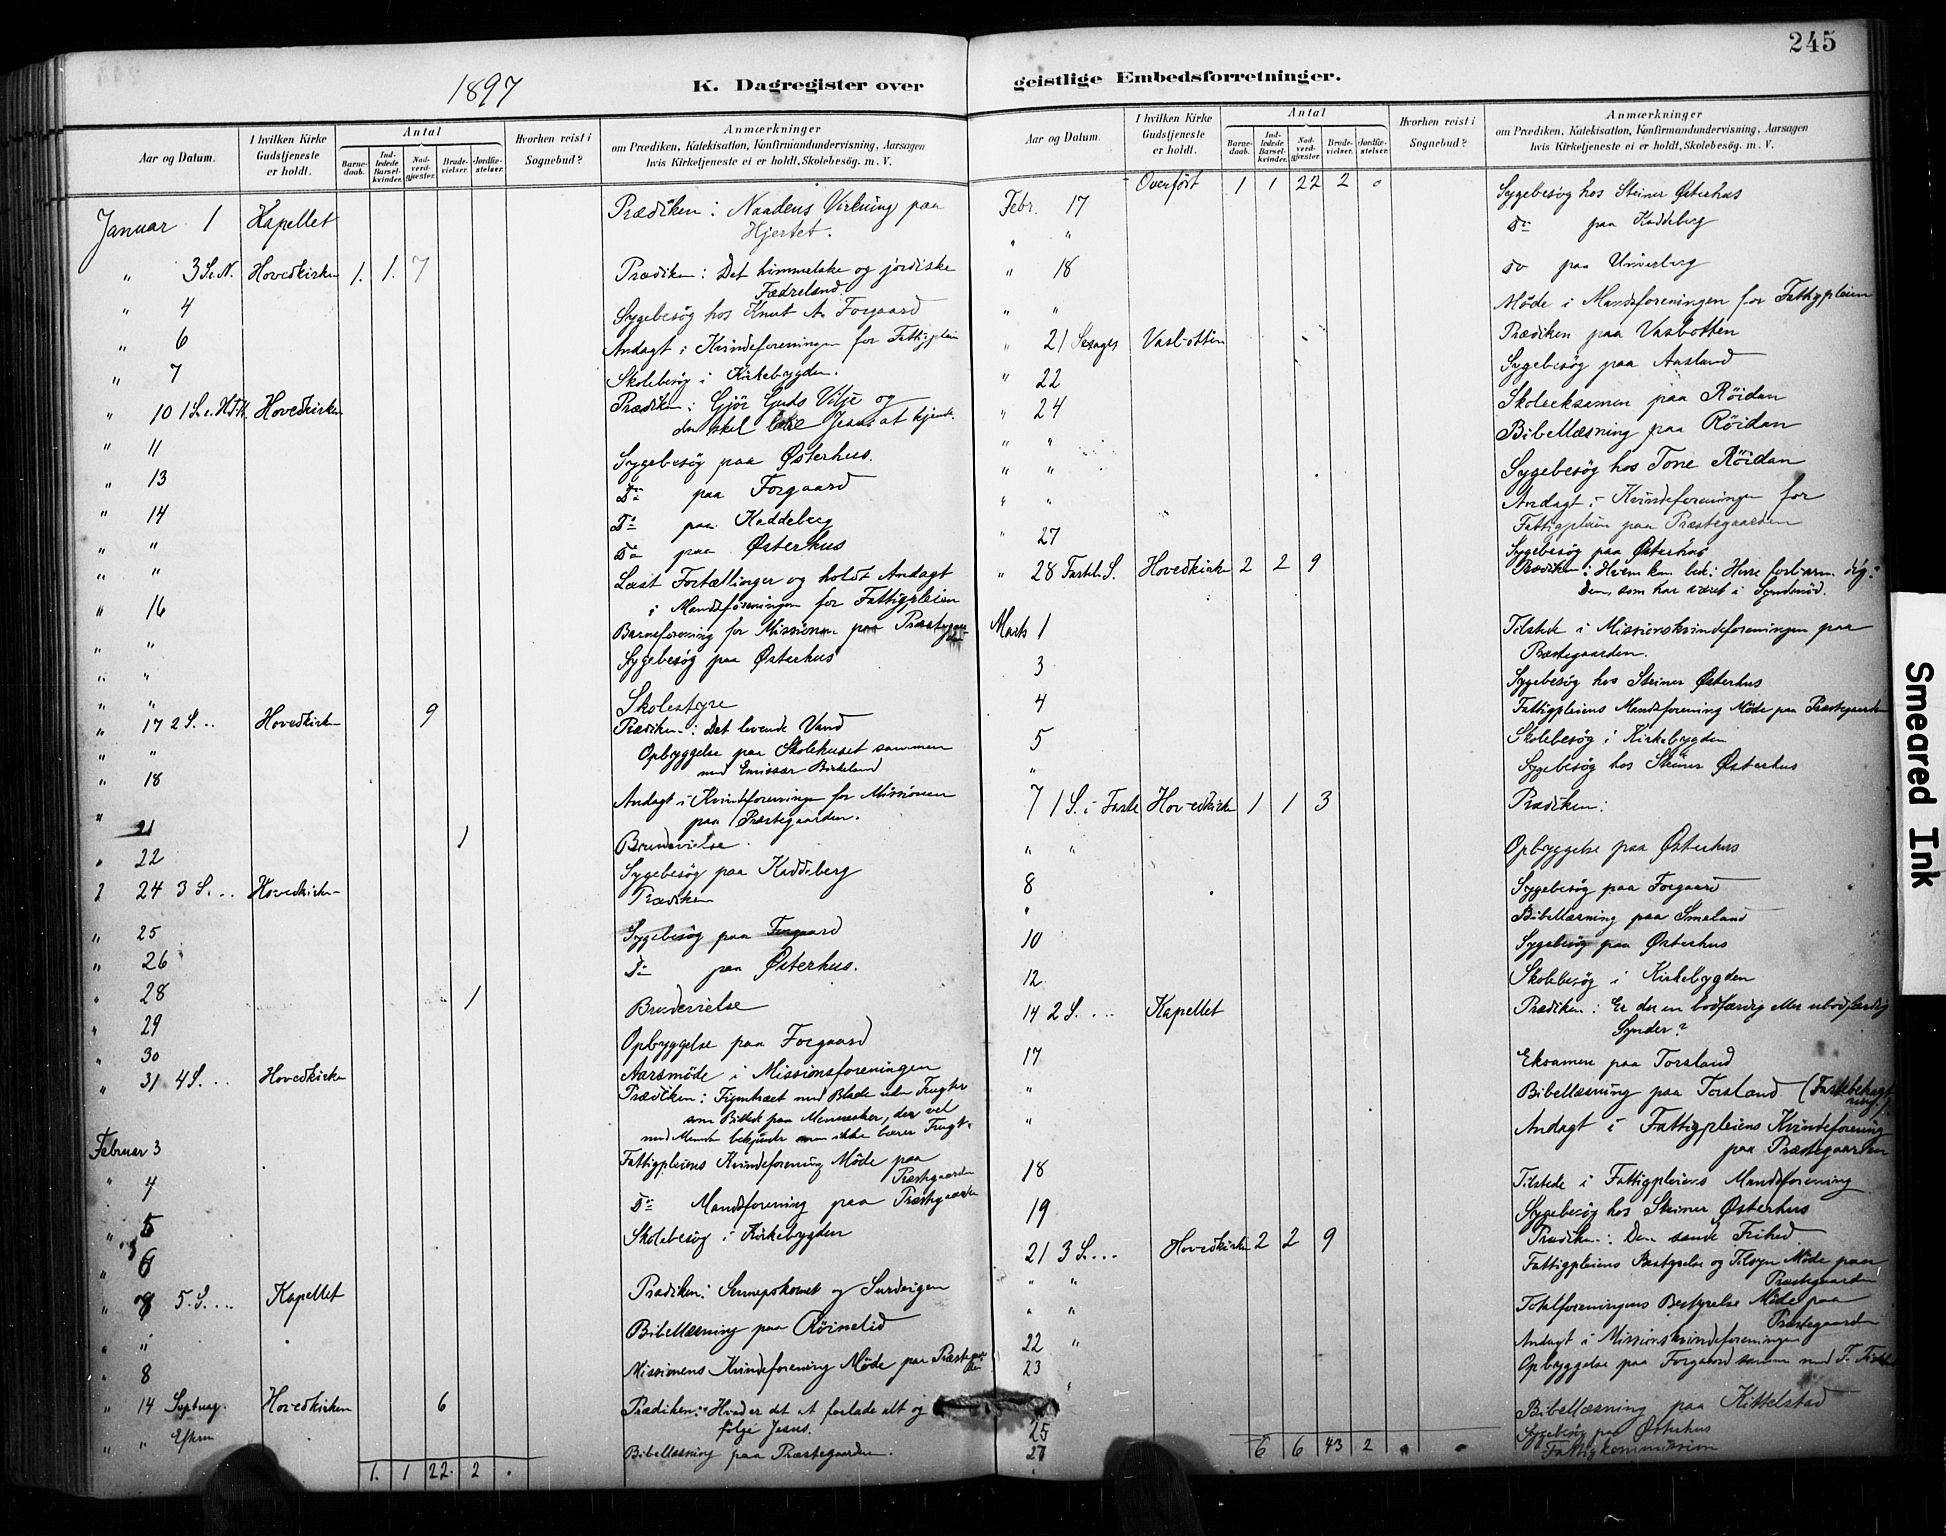 245
1897
K. Dagregister over
geistlige Embedsforretninger.
Aar og Datum.
I hvilken Kirke Gudstjeneste er holdt.
Antal
Barnedaab.
Indledede Barselkvinder.
Nadverdgjester.
Brudevielser.
Jordfæstelser.
Hvorhen reist i Sognebud?
Anmærkninger
om Prædiken, Katekisation, Konfirmandundervisning, Aarsagen
hvis Kirketjeneste ei er holdt, Skolebesøg. m. V.
Januar 1 Kapellet Prædiken: Naadens Virkning paa
Hjertet.
" 3 S.e.N. Hovedkirken 1. 1. 7 Prædiken: Det himmelske og jordiske
Fædreland.
" 4 Sygebesøg hos Knut A. Forgaard
" 6 Andagt i Kvindeforeningen for Fattigpleien
" 7 Skolebesøg i Kirkebygden.
" 10 1 S.e.H.3.K. Hovedkirken Prædiken: Gjør Guds Vilje og
du skal lære Jesus at kjende.
" 11 Sygebesøg paa Østerhus.
" 13 Do paa Forgaard
" 14 Do paa Kaddeberg
" " Do paa Østerhus
" " Læst Fortællinger og holdt Andagt
i Mandsforeningen for Fattigpleien
" 16 Barneforening for Missionen paa Præstegaarden
" " Sygebesøg paa Østerhus
" " Skolestyre
" 17 2 S... Hovedkirken 9 Prædiken: Det levende Vand
" " Opbyggelse paa Skolehuset sammen
med Emissær Birkeland
" 18 Andagt i Kvindeforeningen for Missionen
paa Præstegaarden.
" 21 1 Brudevielse.
" 22 Sygebesøg paa Kaddeberg
" 24 3 S... Hovedkirken Prædiken
" 25 Sygebesøg paa Forgaard
" 26 Do paa Østerhus.
" 28 1 Brudevielse
" 29 Opbyggelse paa Forgaard
" 30 Aarsmøde i Missionsforeningen
" 31 4 S... Hovedkirken Prædiken: Figentræet med Blade uden Frugter
som Billede paa Mennesker, der vel
med Munden bekjender men ikke bærer Frugt.
Februar 3 Fattigpleiens Kvindeforening Møde paa
Præstegaarden
" 4 Do Mandsforening paa Præstegaarden
" 5 Skolebesøg i Kirkebygden
" 6
" 5. S.... Kapellet Prædiken: Sennepskornet og Surdeigen
" " Bibellæsning paa Røinelid
" 8 Missionens Kvindeforening Møde paa Præstegaarden
" 14 Septuag. Hovedkirken 6 Prædiken: Hvad er det at forlade alt og
følge Jesus.
" " Efterm Bibellæsning paa Præstegaarden.
1. 1 22. 2 .
Aar og Datum.
I hvilken Kirke Gudstjeneste er holdt.
Antal
Barnedaab.
Indledede Barselkvinder.
Nadverdgjester.
Brudevielser.
Jordfæstelser.
Hvorhen reist i Sognebud?
Anmærkninger
om Prædiken, Katekisation, Konfirmandundervisning, Aarsagen
hvis Kirketjeneste ei er holdt, Skolebesøg. m. V.
Overført 1 1 22 2 0
Febr. 17 Sygebesøg hos Steiner Østerhus
" " Do paa Kaddeberg
" 18 Do paa Uneberg
" " Møde i Mandsforeningen for Fattigpleien
" 21 Sexages Vasbotten Prædiken paa Vasbotten
" 22 Sygebesøg paa Aasland
" 24 Skoleeksamen paa Røidan
" " Bibellæsning paa Røidan
" " Sygebesøg hos Tone Røidan
" " Andagt i Kvindeforeningen for
Fattigpleien paa Præstegaarden
" 27 Sygebesøg paa Østerhus
" 28 Fastel. S. Hovedkirken 2 2 9 Prædiken: Hvem kan bede: Herre forbarm dig?
Den, som har været i Syndenød.
Marts 1 Tilstede i Missionskvindeforeningen paa
Præstegaarden.
3 Sygebesøg hos Steiner Østerhus
4 Fattigpleiens Mandsforening Møde paa Præstegaarden
5 Skolebesøg i Kirkebygden
" Sygebesøg hos Steiner Østerhus
7 1 S. i Faste Hovedkirken 1 1 3 Prædiken:
" " Opbyggelse paa Østerhus
8 Sygebesøg paa Forgaard
" Bibellæsning paa Smeland
10 Sygebesøg paa Østerhus
12 Skolebesøg i Kirkebygden
14 2 S.... Kapellet Prædiken: Er du en bodfærdig eller ubodfærdig
Synder?
17 Eksamen paa Torsland
" Bibellæsning paa Torsland
" Andagt i Fattigpleiens Kvindeforening
paa Præstegaarden
18 Tilstede i Fattigpleiens Mandsforening
19 Sygebesøg hos Steiner Østerhus
21 3 S.... Hovedkirken 2 2 9 Prædiken: Den sande Frihed
" " Fattigpleiens Bestyrelse og Tilsyn Møde paa
Præstegaarden
" " Totalforeningens Bestyrelse Møde paa
Præstegaarden
22 " Andagt i Missionskvindeforeningen
23 Opbyggelse paa Forgaard samm med
" Bibellæsning paa Kittelstad
25 Sygebesøg paa Østerhus
27 Fattigkommission
6 6 43 2
Smeared Ink